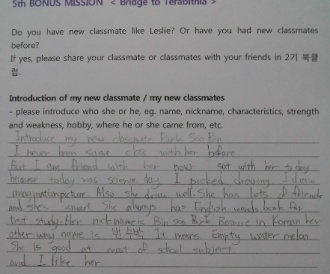 5th BONUS MISSION < Bridge to Terabithia >
Do you have new classmate like Leslie? Or have you had new classmates
before?
If yes, please share your classmate or classmates with your friends in 2기 북클
럽.
Introduction of my new classmate / my new classmates
- please introduce who she or he, eg. name, nickname, characteristics, strength
and weakness, hobby, where he or she came from, etc.
Introduce my new classmate Park Soo Bin
I never been same class with her before
But I am friend with her now sat with her today
because today was science day I picked drawing I draw
imagination picture Also she draw well She has lots of friends
and she's smart She always has English words book for
test study Her nickname is Bin Soo Park Because in Korean her
other way name is 빈수박 It means Empty water melon
She is good at most of school subject
and I like her